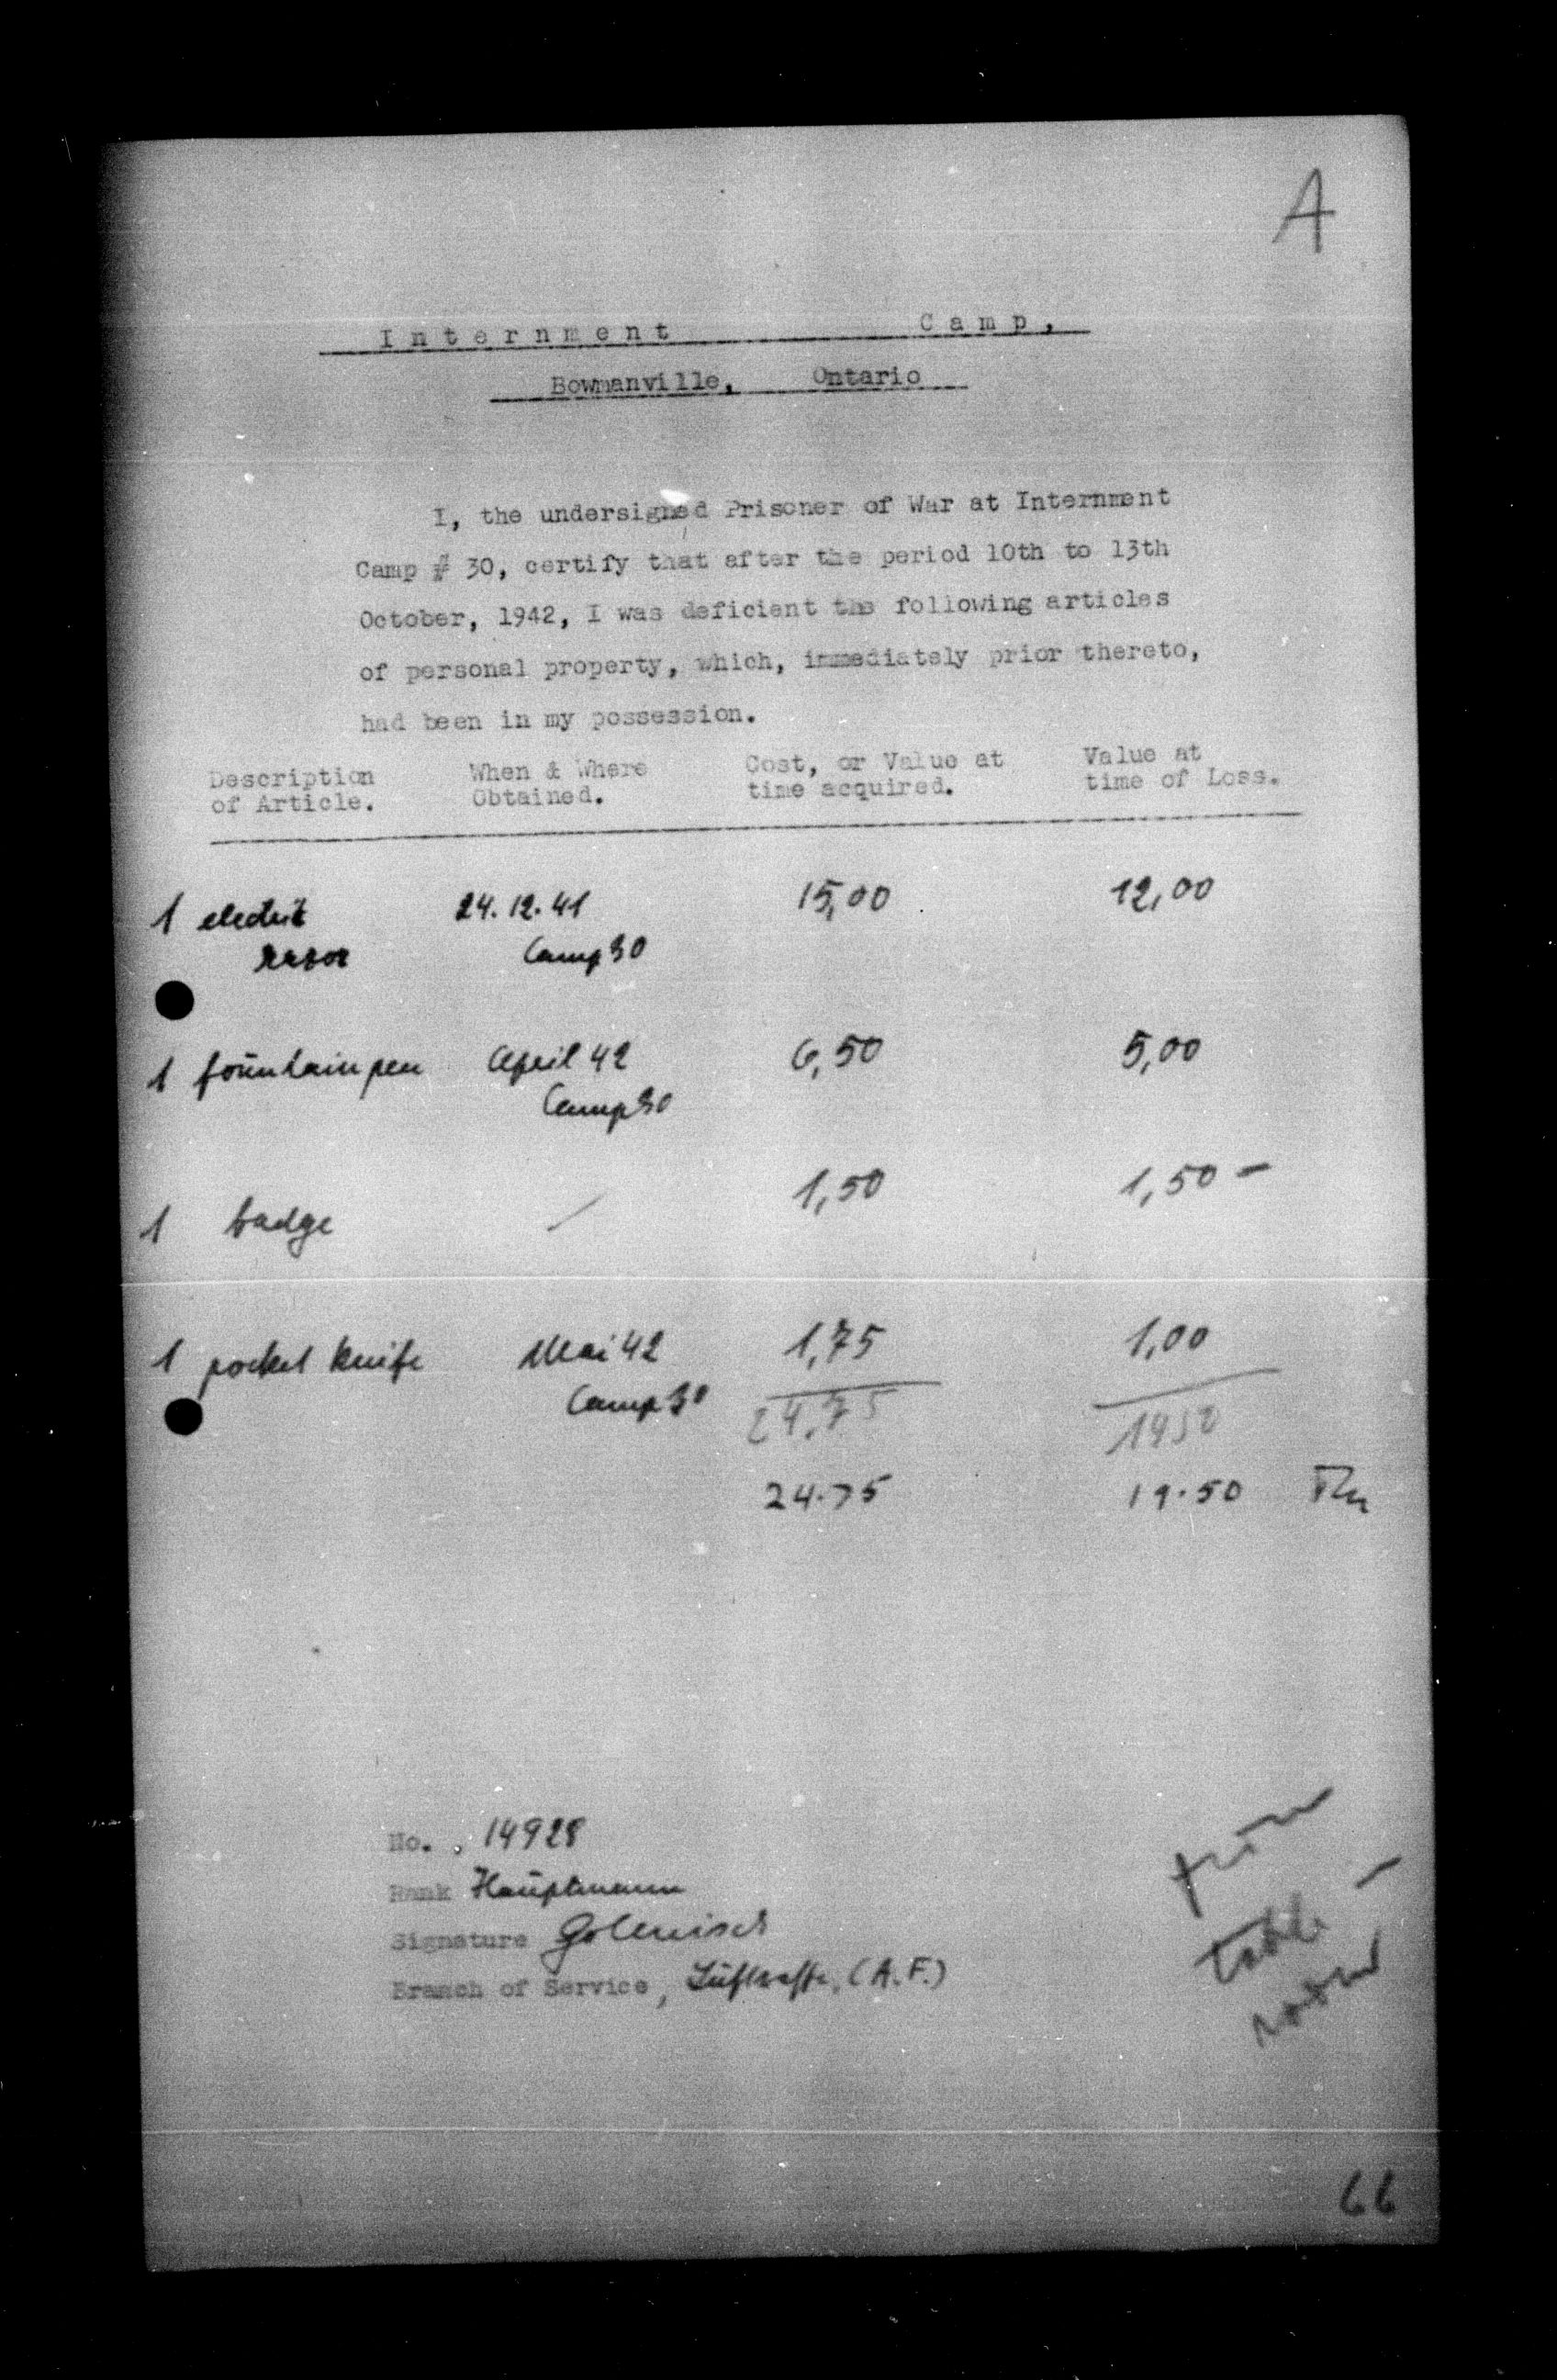 A
Internment Camp,
Bowmanville, Ontario
I, the undersigned Prisoner of War at Internment
Camp # 30, certify that after the period 10th to 13th
October, 1942, I was deficient the following articles
of personal property, which, immediately prior thereto,
had been in my possession.
Description of Article. When & Where Obtained. Cost, or Value at time acquired. Value at time of Loss.
1 electric 24.12.41 15,00 12,00
rasor Camp 30
1 fountain pen April 42 6,50 5,00
Camp 30
1 badge — 1,50 1,50 –
1 pocket knife Mai 42 1,75 1,00
Camp 30 24,75 1950
24.75 19.50
No. 14928
Rank Hauptmann
Signature
Branch of Service, Luftwaffe, (A.F.)
66